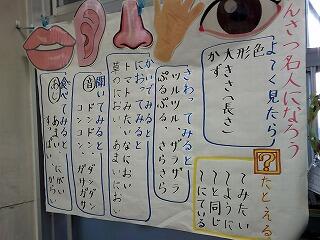 んさつ名人になろう
よーく見たら
色
形
大きさ(長さ)
かず
さわってみると
ツルツル、ザラザラ
ぷるぷる、さらさら
かいでみると
におってみると
トマトみたいなにおい
草のにおい あまいにおい
聞いてみると
音
ドンドン、ダンダン
コンコン、ガサガサ
食べてみると
あじ
あまい にがい
すっぱい
からい
?
たとえる
〜みたい
〜ように
〜と同じ
〜ににている